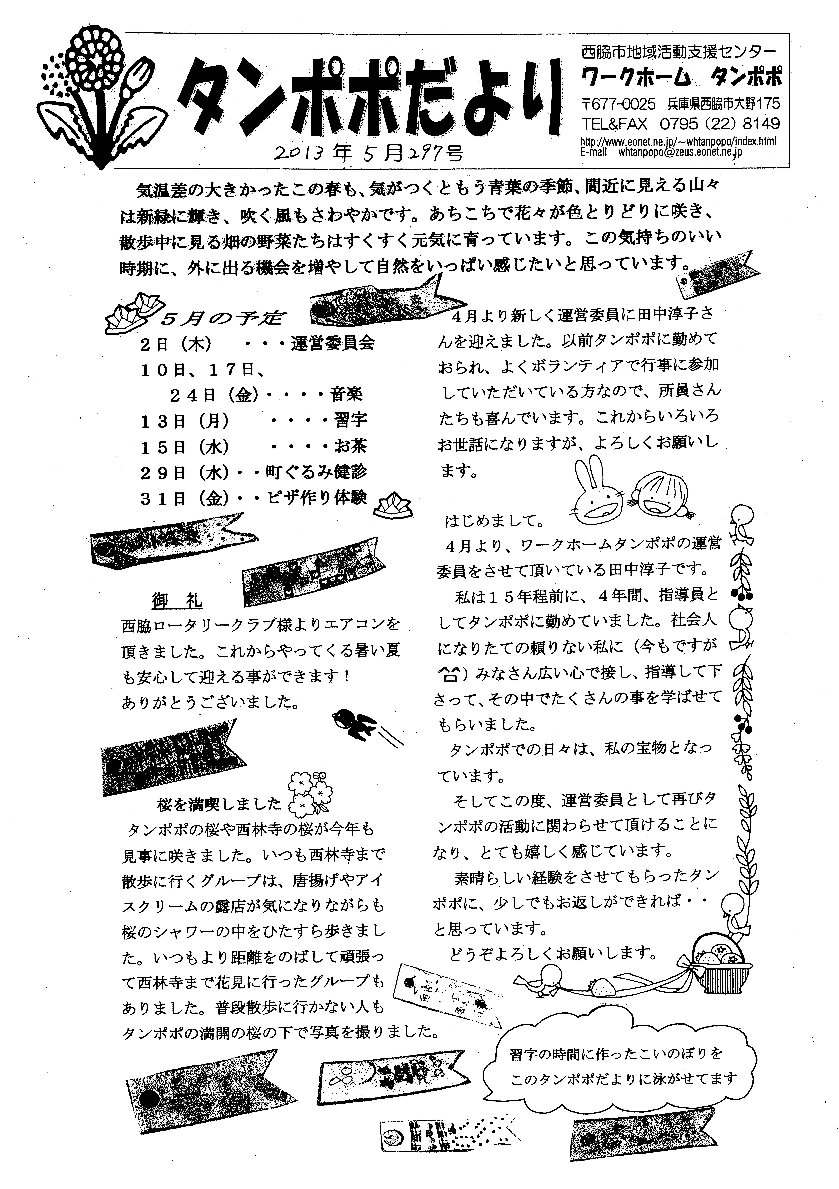 タンポポだより
2013年5月297号
西脇市地域活動支援センター
ワークホーム タンポポ
〒677-0025 兵庫県西脇市大野175
TEL&FAX 0795(22)8149
http://www.eonet.ne.jp/~whtanpopo/index.html
E-mail whtanpopo@zeus.eonet.ne.jp
気温差の大きかったこの春も、気がつくともう青葉の季節、間近に見える山々
は新緑に輝き、吹く風もさわやかです。あちこちで花々が色とりどりに咲き、
散歩中に見る畑の野菜たちはすくすく元気に育っています。この気持ちのいい
時期に、外に出る機会を増やして自然をいっぱい感じたいと思っています。
5月の予定
2日(木) ・・・運営委員会
10日、17日、
24日(金)・・・・音楽
13日(月) ・・・・習字
15日(水) ・・・・お茶
29日(水)・・町ぐるみ健診
31日(金)・・ピザ作り体験
御 礼
西脇ロータリークラブ様よりエアコンを
頂きました。これからやってくる暑い夏
も安心して迎える事ができます!
ありがとうございました。
桜を満喫しました
タンポポの桜や西林寺の桜が今年も
見事に咲きました。いつも西林寺まで
散歩に行くグループは、唐揚げやアイ
スクリームの露店が気になりながらも
桜のシャワーの中をひたすら歩きまし
た。いつもより距離をのばして頑張っ
て西林寺まで花見に行ったグループも
ありました。普段散歩に行かない人も
タンポポの満開の桜の下で写真を撮りました。
4月より新しく運営委員に田中淳子さ
んを迎えました。以前タンポポに勤めて
おられ、よくボランティアで行事に参加
していただいている方なので、所員さん
たちも喜んでいます。これからいろいろ
お世話になりますが、よろしくお願いし
ます。
はじめまして。
4月より、ワークホームタンポポの運営
委員をさせて頂いている田中淳子です。
私は15年程前に、4年間、指導員と
してタンポポに勤めていました。社会人
になりたての頼りない私に(今もですが
^^)みなさん広い心で接し、指導して下
さって、その中でたくさんの事を学ばせて
もらいました。
タンポポでの日々は、私の宝物となっ
ています。
そしてこの度、運営委員として再びタ
ンポポの活動に関わらせて頂けることに
なり、とても嬉しく感じています。
素晴らしい経験をさせてもらったタン
ポポに、少しでもお返しができれば・・
と思っています。
どうぞよろしくお願いします。
習字の時間に作ったこいのぼりを
このタンポポだよりに泳がせてます